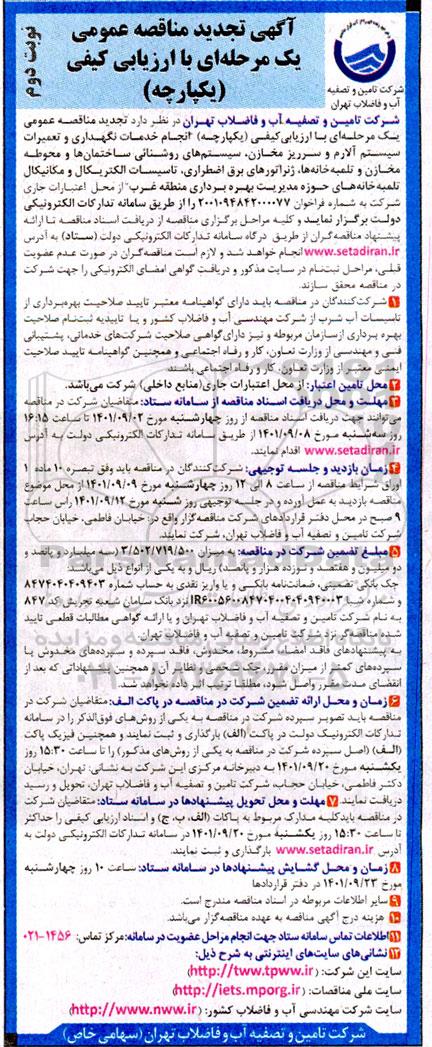 آگهی تجدید مناقصه عمومی
یک مرحله‌ای با ارزیابی کیفی
(یکپارچه)
نوبت دوم
شرکت تامین و تصفیه
آب و فاضلاب تهران
شرکت تامین و تصفیه آب و فاضلاب تهران در نظر دارد تجدید مناقصه عمومی
یک مرحله‌ای با ارزیابی کیفی (یکپارچه) "انجام خدمات نگهداری و تعمیرات
سیستم آلارم و سرریز مخازن، سیستم‌های روشنائی ساختمان‌ها و محوطه
مخازن و تلمبه‌خانه‌ها، ژنراتورهای برق اضطراری، تاسیسات الکتریکال و مکانیکال
تلمبه‌خانه‌های حوزه مدیریت بهره برداری منطقه غرب" از محل اعتبارات جاری
شرکت به شماره فراخوان ۲۰۰۱۰۹۴۸۴۲۰۰۰۰۷۷ را از طریق سامانه تدارکات الکترونیکی
دولت برگزار نماید و کلیه مراحل برگزاری مناقصه از دریافت اسناد مناقصه تا ارائه
پیشنهاد مناقصه‌گران از طریق درگاه سامانه تدارکات الکترونیکی دولت (ستاد) به آدرس
www.setadiran.ir انجام خواهد شد و لازم است مناقصه‌گران در صورت عدم عضویت
قبلی، مراحل ثبت‌نام در سایت مذکور و دریافت گواهی امضای الکترونیکی را جهت شرکت
در مناقصه محقق سازند.
۱ شرکت‌کنندگان در مناقصه باید دارای گواهینامه معتبر تایید صلاحیت بهره‌برداری از
تاسیسات آب شرب از شرکت مهندسی آب و فاضلاب کشور و یا تاییدیه ثبت‌نام صلاحیت
بهره برداری ازسازمان مربوطه و نیز دارای گواهی صلاحیت شرکت‌های خدماتی، پشتیبانی
فنی و مهندسی از وزارت تعاون، کار و رفاه اجتماعی و همچنین گواهینامه تایید صلاحیت
ایمنی معتبر از وزارت تعاون، کار و رفاه اجتماعی باشند
۲ محل تامین اعتبار: از محل اعتبارات جاری(منابع داخلی) شرکت می‌باشد.
۳ مهلت و محل دریافت اسناد مناقصه از سامانه ستاد: متقاضیان شرکت در مناقصه
می‌توانند جهت دریافت اسناد مناقصه از روز چهارشنبه مورخ ۱۴۰۱/۰۹/۰۲ تا ساعت ۱۶:۱۵
روز سه‌شنبه مورخ ۱۴۰۱/۰۹/۰۸ از طریق سامانه تدارکات الکترونیکی دولت به آدرس
www.setadiran.ir اقدام نمایند.
۴ زمان بازدید و جلسه توجیهی: شرکت‌کنندگان در مناقصه باید وفق تبصره ۱۰ ماده ۱
اوراق شرایط مناقصه از ساعت ۸ الی ۱۲ روز چهارشنبه مورخ ۱۴۰۱/۰۹/۰۹ از محل موضوع
مناقصه بازدید به عمل آورده و در جلسه توجیهی روز شنبه مورخ ۱۴۰۱/۰۹/۱۲ راس ساعت
۹ صبح در محل دفتر قراردادهای شرکت مناقصه‌گزار واقع در: خیابان فاطمی، خیابان حجاب
شرکت تامین و تصفیه آب و فاضلاب تهران، شرکت نمایند.
۵ مبلغ تضمین شرکت در مناقصه: به میزان ۳/۵۰۲/۷۱۹/۵۰۰ (سه میلیارد و پانصد و
دو میلیون و هفتصد و نوزده هزار و پانصد) ریال و به یکی از انواع ذیل می‌باشد:
چک بانکی تضمینی، ضمانت‌نامه بانکی و یا واریز نقدی به حساب شماره ۸۴۷۴۰۴۰۴۰۹۴۰۳
و شماره شبا IR۶۰۰۵۶۰۰۸۴۷۰۴۰۰۴۰۴۰۹۴۰۰۳ نزد بانک سامان شعبه تجریش کد ۸۴۷
به نام شرکت تامین و تصفیه آب و فاضلاب تهران و یا ارائه گواهی مطالبات قطعی تایید
شده مناقصه‌گر نزد شرکت تامین و تصفیه آب و فاضلاب تهران
به پیشنهادهای فاقد امضاء، مشروط، مخدوش، فاقد سپرده و سپرده‌های مخدوش یا
سپرده‌های کمتر از میزان مقرر، چک شخصی و نظایر آن و همچنین پیشنهاداتی که بعد از
انقضای مدت مقرر واصل شود، مطلقا ترتیب اثر داده نخواهد شد.
۶ زمان و محل ارائه تضمین شرکت در مناقصه در پاکت الف: متقاضیان شرکت در
مناقصه باید تصویر سپرده شرکت در مناقصه به یکی از روش‌های فوق‌الذکر را در سامانه
تدارکات الکترونیک دولت در پاکت (الف) بارگذاری و ثبت نمایند و همچنین فیزیک پاکت
(الف) (اصل سپرده شرکت در مناقصه به یکی از روش‌های مذکور) را تا ساعت ۱۵:۳۰ روز
یکشنبه مورخ ۱۴۰۱/۰۹/۲۰ به دبیرخانه مرکزی این شرکت به نشانی: تهران، خیابان
دکتر فاطمی، خیابان حجاب، شرکت تامین و تصفیه آب و فاضلاب تهران، تحویل و رسید
دریافت نمایند. ۷ مهلت و محل تحویل پیشنهادها در سامانه ستاد: متقاضیان شرکت
در مناقصه بایدکلیه مدارک مربوط به پاکات (الف، ب، ج) و اسناد ارزیابی کیفی را حداکثر
تا ساعت ۱۵:۳۰ روز یکشنبه مورخ ۱۴۰۱/۰۹/۲۰ در سامانه تدارکات الکترونیکی دولت به
آدرس www.setadiran.ir بارگذاری و ثبت نمایند.
۸ زمان و محل گشایش پیشنهادها در سامانه ستاد: ساعت ۱۰ روز چهارشنبه
مورخ ۱۴۰۱/۰۹/۲۳ در دفتر قراردادها
۹ سایر اطلاعات مربوطه در اسناد مناقصه مندرج است.
۱۰ هزینه درج آگهی مناقصه به عهده مناقصه‌گزار می‌باشد.
۱۱ اطلاعات تماس سامانه ستاد جهت انجام مراحل عضویت در سامانه: مرکز تماس: ۱۴۵۶-۰۲۱
۱۲ نشانی‌های سایت‌های اینترنتی به شرح ذیل:
سایت این شرکت: (http://tww.tpww.ir)
سایت ملی مناقصات: (http://iets.mporg.ir)
سایت شرکت مهندسی آب و فاضلاب کشور: (http://www.nww.ir)
شرکت تامین و تصفیه آب و فاضلاب تهران (سهامی خاص)